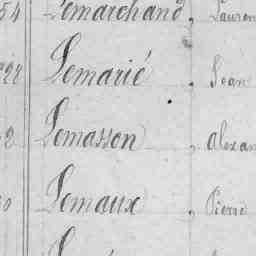 54 Lemarchand, Lauren
Lemarié, Jean
2 Lemasson, Alexan
Lemaux, Pierre